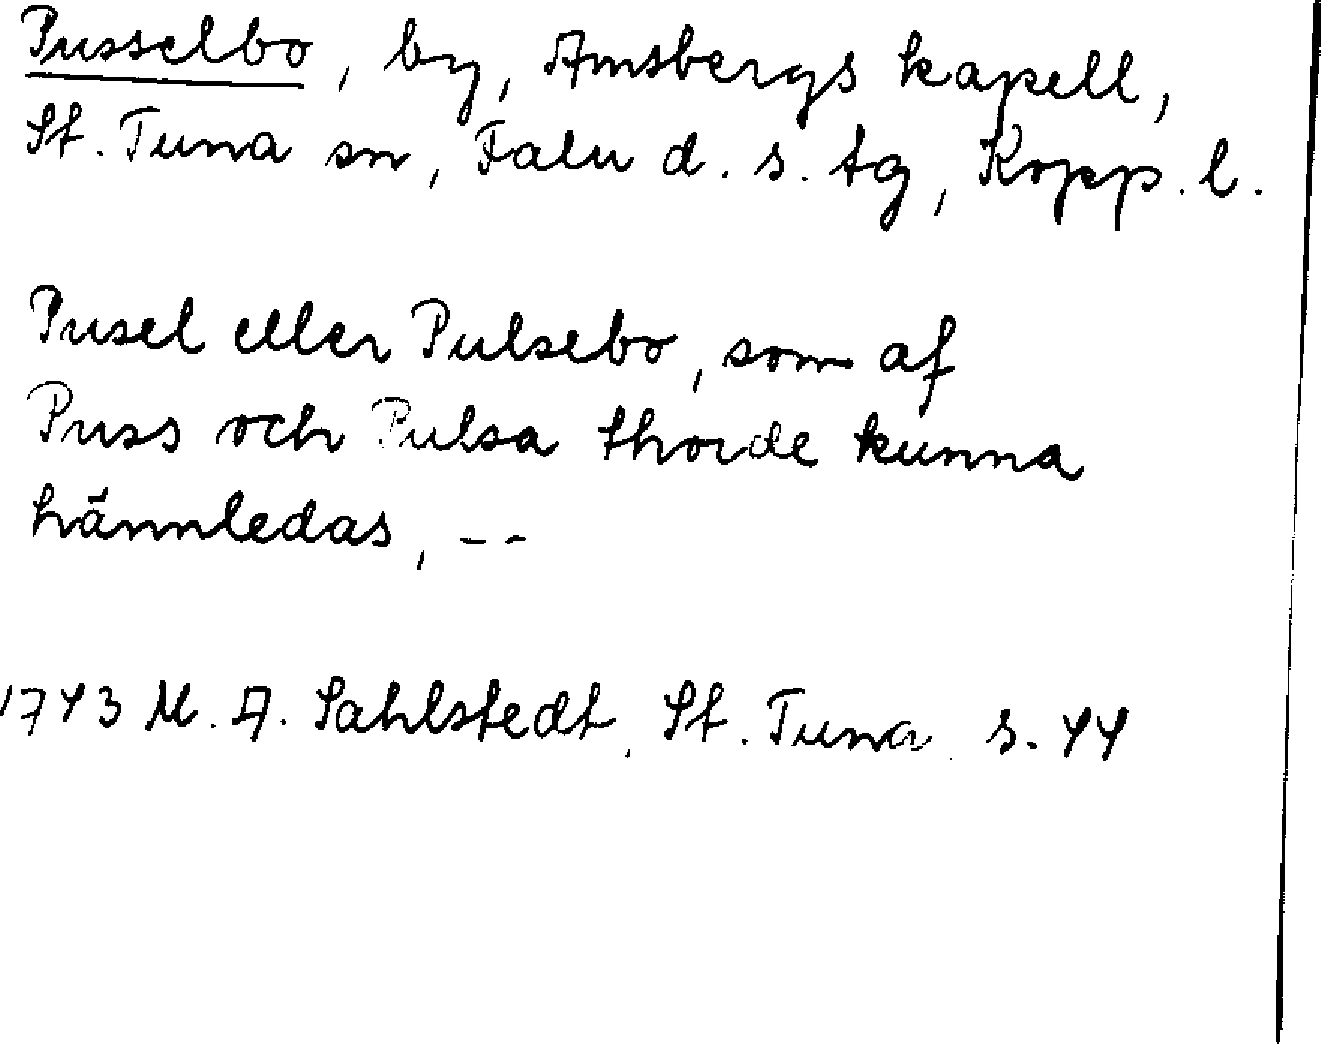 Pusselbo, by, Amsbergs kapell,
St. Tuna sn, Falu d. s. tg, Kopp. l.
Pusel eller Pulsebo, som af
Puss och Pulsa thorde kunna
hännledas, --
1743 M. A. Sahlstedt, St. Tuna s. 44